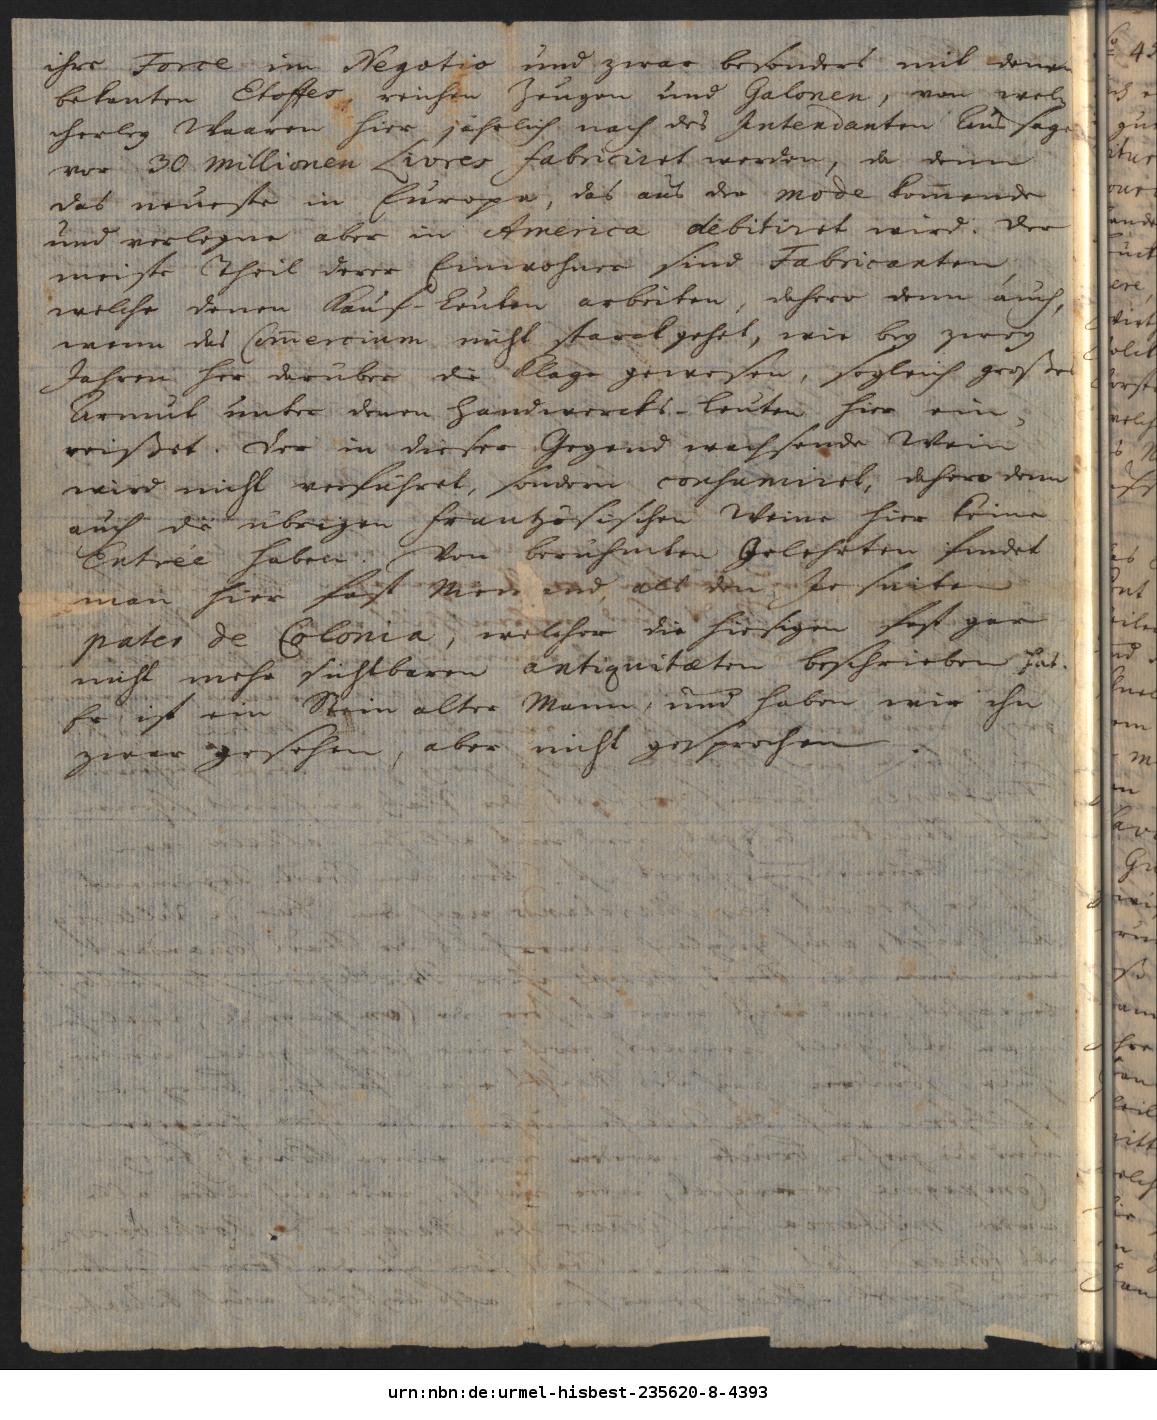 ihre Force im Negotio und zwar besonders mit denen
bekanten Etoffes, reichen Zeugen und Galonen, von wel-
cherley Waaren hier jährlich nach des Intendanten Aussage
vor 30 Millionen Livres fabriciret werden, da denn
das neueste in Europa, das aus der mode kom̄ende
und verlegne aber in America debitiret wird. Der
meiste Theil derer Einwohner sind Fabricanten,
welche denen Kauf-Leuten arbeiten, dahero denn auch,
wenn das Com̄ercium nicht starck gehet, wie bey zwey
Jahren her darüber die Klage gewesen, sogleich großes
Armut unter denen Handwercks-Leuten hier ein-
reißet. Der in dieser Gegend wachsende Wein
wird nicht verführet, sondern consumiret, dahero denn
auch die übrigen frantzösischen Weine hier keine
Entrée haben. Von berühmten Gelehrten findet
man hier fast Niemand, als den Jesuiten
pater de Colonia, welcher die hiesigen fast gar
nicht mehr sichtbaren antiquitæten beschrieben hat.
Er ist ein Stein alter Mann, und haben wir ihn
zwar gesehen, aber nicht gesprochen.
urn:nbn:de:urmel-hisbest-235620-8-4393